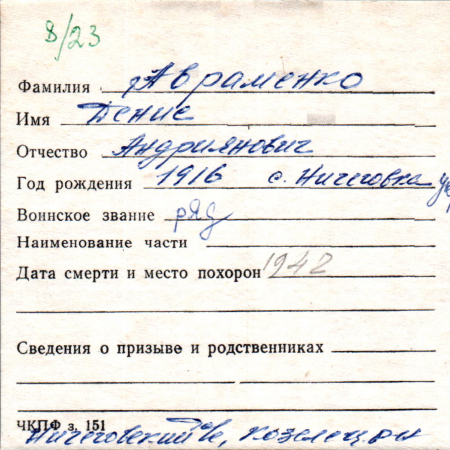 8/23
Фамилия Авраменко
Имя Денис
Отчество Андриянович
Год рождения 1916 с. Ничеговка
Воинское звание ряд
Наименование части
Дата смерти и место похорон 1942
Сведения о призыве и родственниках
ЧКПФ з. 151
Ничеговский